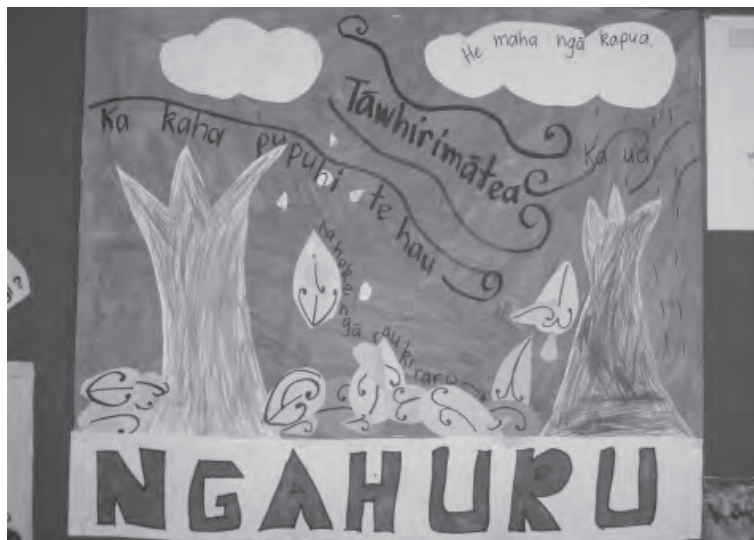 He maha ngā kapua.
Tāwhirimātea
Ka kaha pupuhi te hau
Ka ua
ngā rau ki raro
NGAHURU